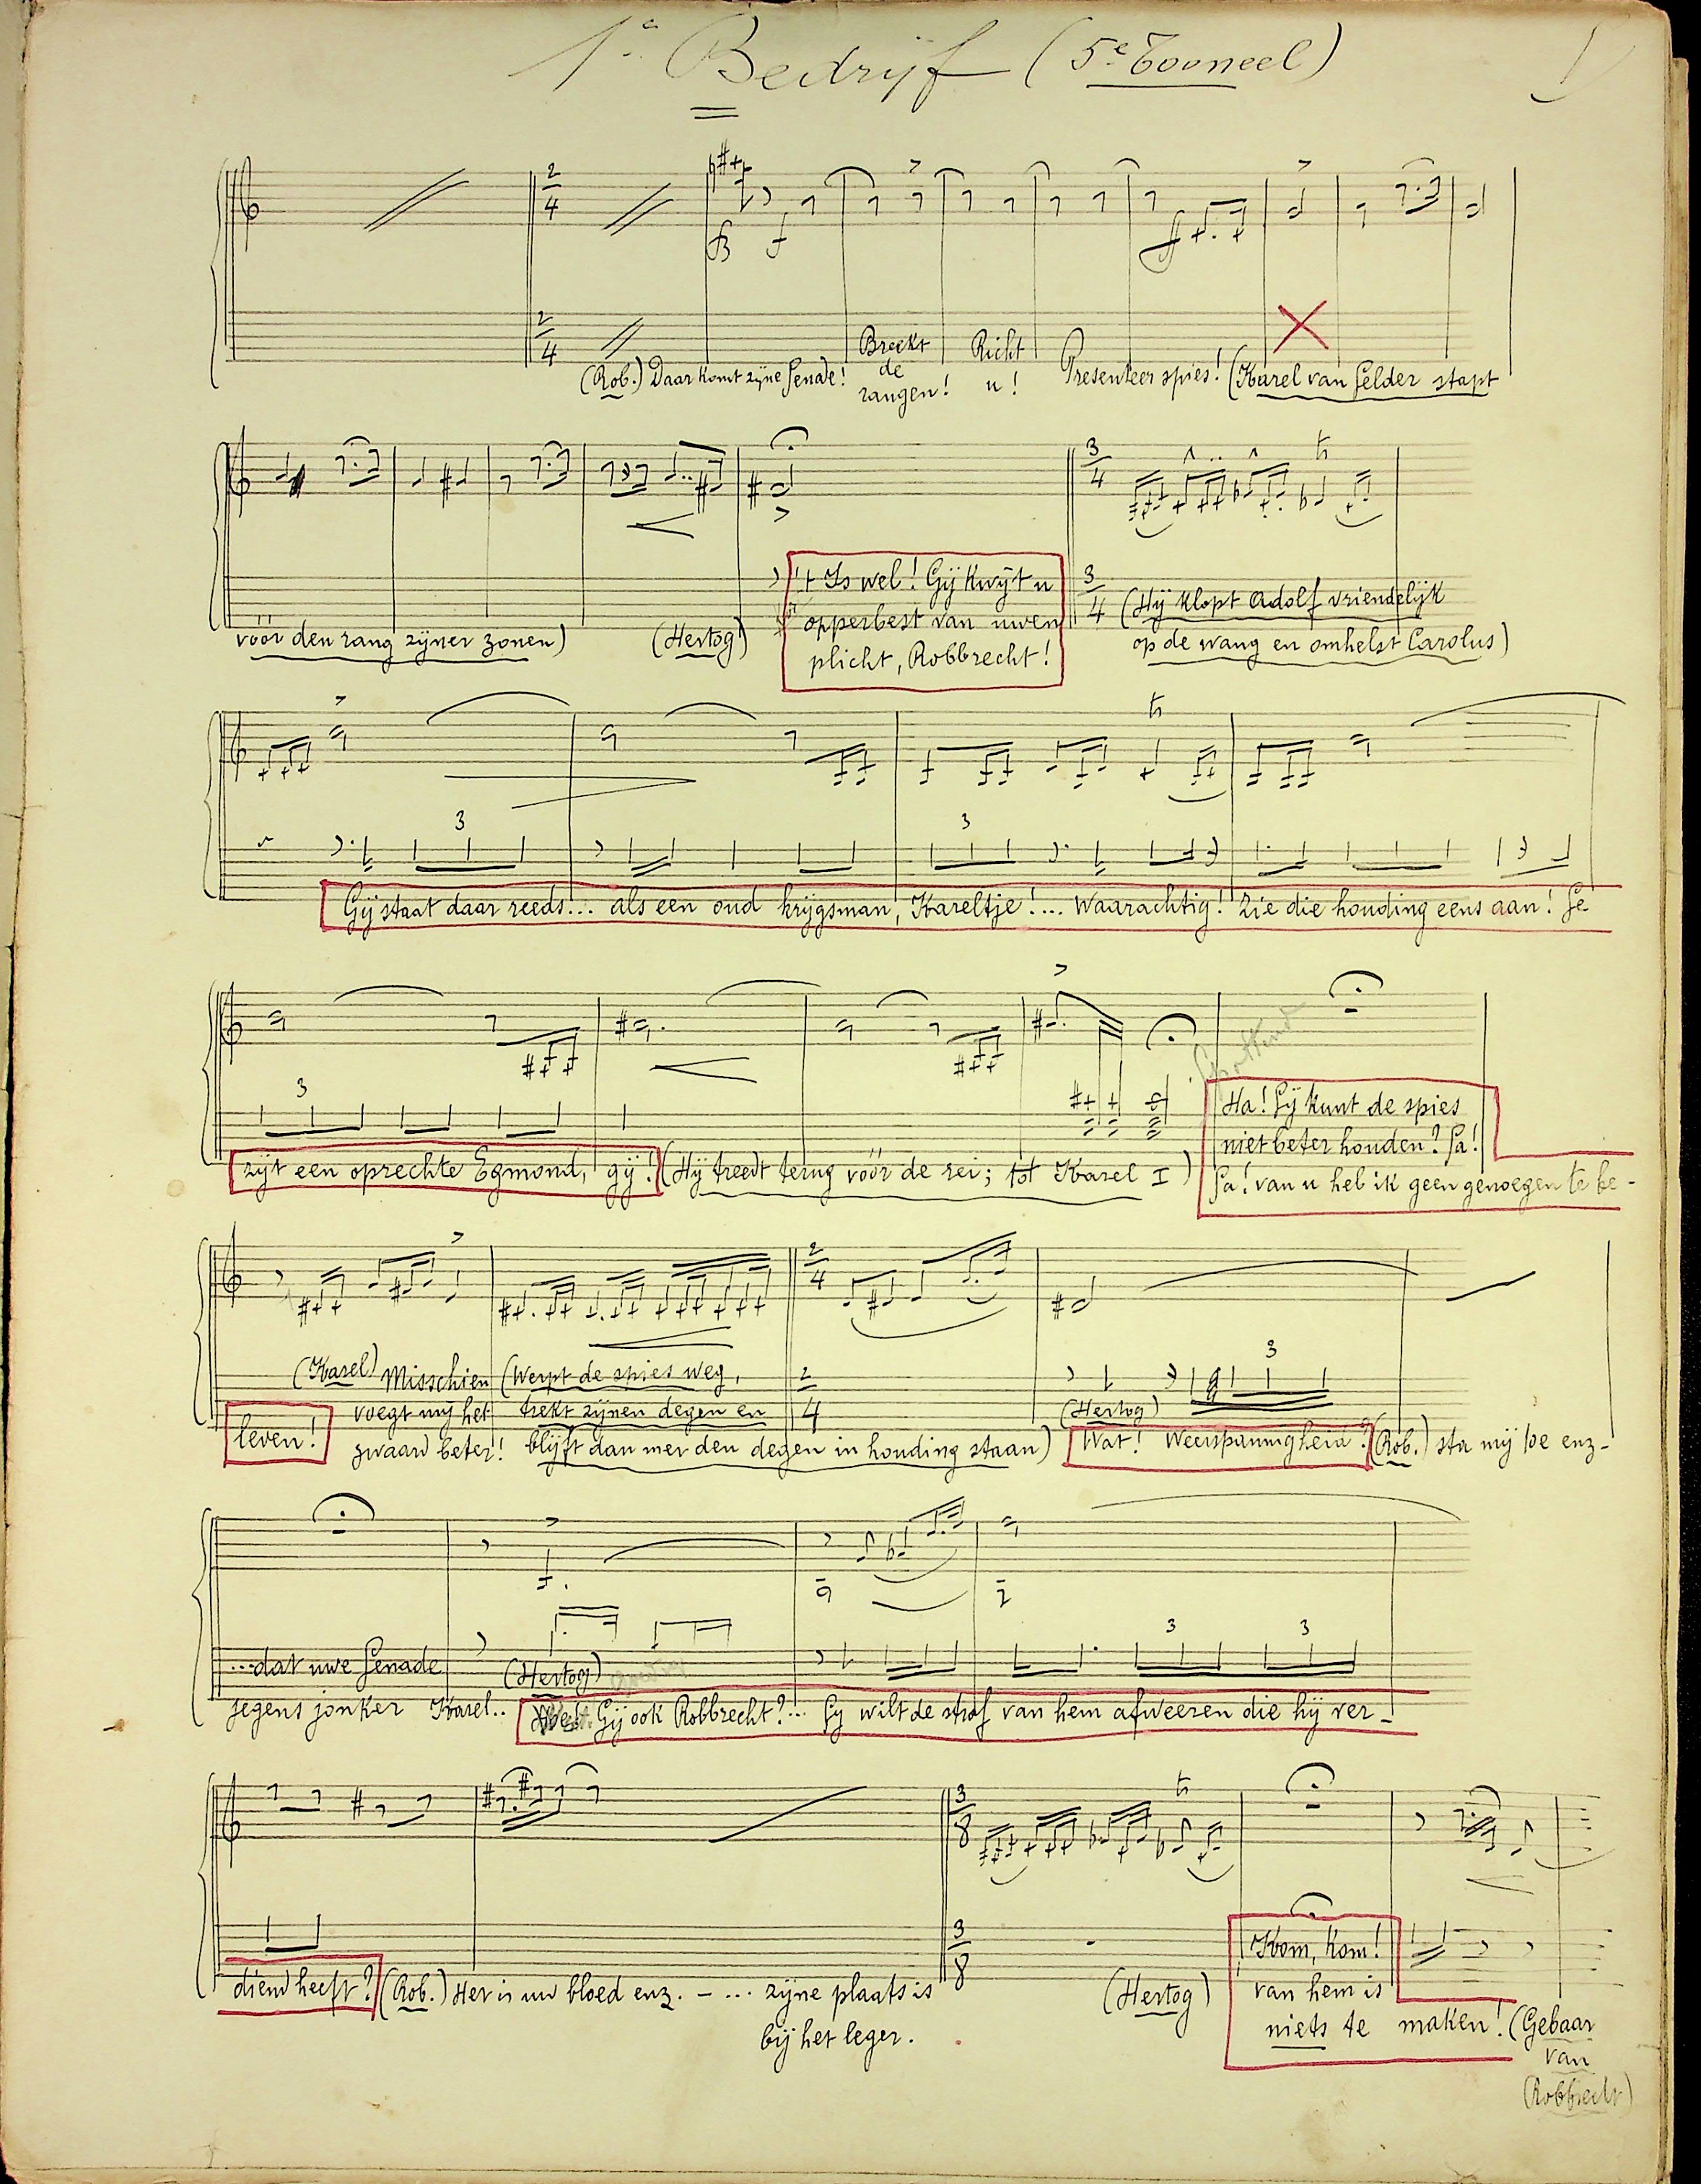 1e Bedrijf (5e Tooneel)
(Rob.) Daar komt zijne Genade!
Breekt de rangen!
Richt u!
Presenteer spies! (Karel van Gelder stapt
vóór den rang zijner zonen)
(Hertog)
't Is wel! Gij kwijt u
opperbest van uwen
plicht, Robbrecht!
(Hij klopt Adolf vriendelijk
op de wang en omhelst Carolus)
3
3
Gij staat daar reeds... als een oud krijgsman, Kareltje!... Waarachtig! Zie die houding eens aan! Ge
3
zijt een oprechte Egmond, gij! (Hij treedt terug vóór de rei; tot Karel I)
Spottend
Ha! Gij kunt de spies
niet beter houden? Ga!
Ga! van u heb ik geen genoegen te be-
leven!
(Karel) Misschien
voegt mij het
zwaard beter!
(Werpt de spies weg,
trekt zijnen degen en
blijft dan met den degen in houding staan)
3
(Hertog)
Wat! Weerspannigheid? (Rob.) sta mij toe enz-
...dat uwe Genade
jegens jonker Karel..
(Hertog)
3 3
Gij ook Robbrecht?... Gij wilt de straf van hem afweeren die hij ver-
diend heeft? (Rob.) Het is uw bloed enz. - ... zijne plaats is
bij het leger.
(Hertog)
Kom, kom!
van hem is
niets te maken! (Gebaar
van
Robbrecht)